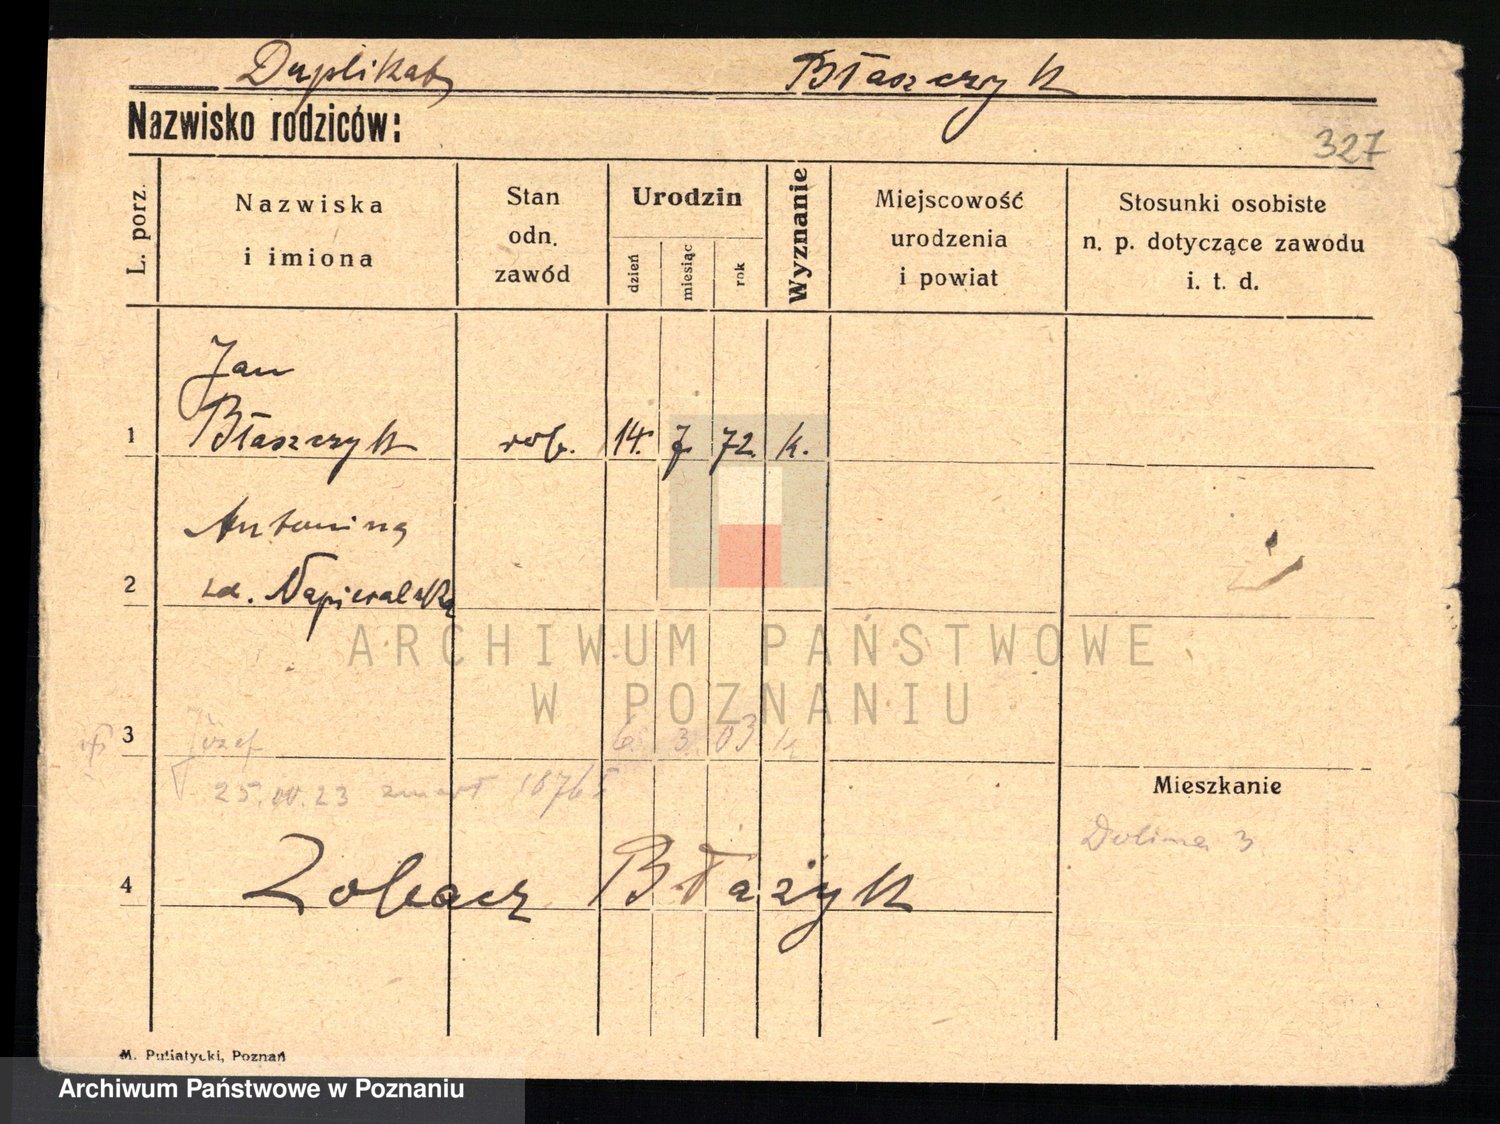 Duplikat Błaszczyk
Nazwisko rodziców:
327
L. porz.
Nazwiska
i imiona
Stan
odn.
zawód
Urodzin
dzień
miesiąc
rok
Wyznanie
Miejscowość
urodzenia
i powiat
Stosunki osobiste
n. p. dotyczące zawodu
i. t. d.
Jan
1 Błaszczyk rob. 14. 7. 72. k.
Antonina
2 Napieralska
ARCHIWUM PAŃSTWOWE
W POZNANIU
3 Józef 6. 3. 03 k
25. 23 zmarł
Mieszkanie
Dolina 3
4 Zobacz Błażyk
M. Putiatycki, Poznań
Archiwum Państwowe w Poznaniu